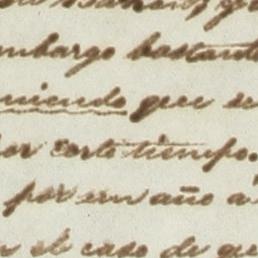 embargo bastante
niendo que se
por corto tiempo.
por un año a
n el caso de que